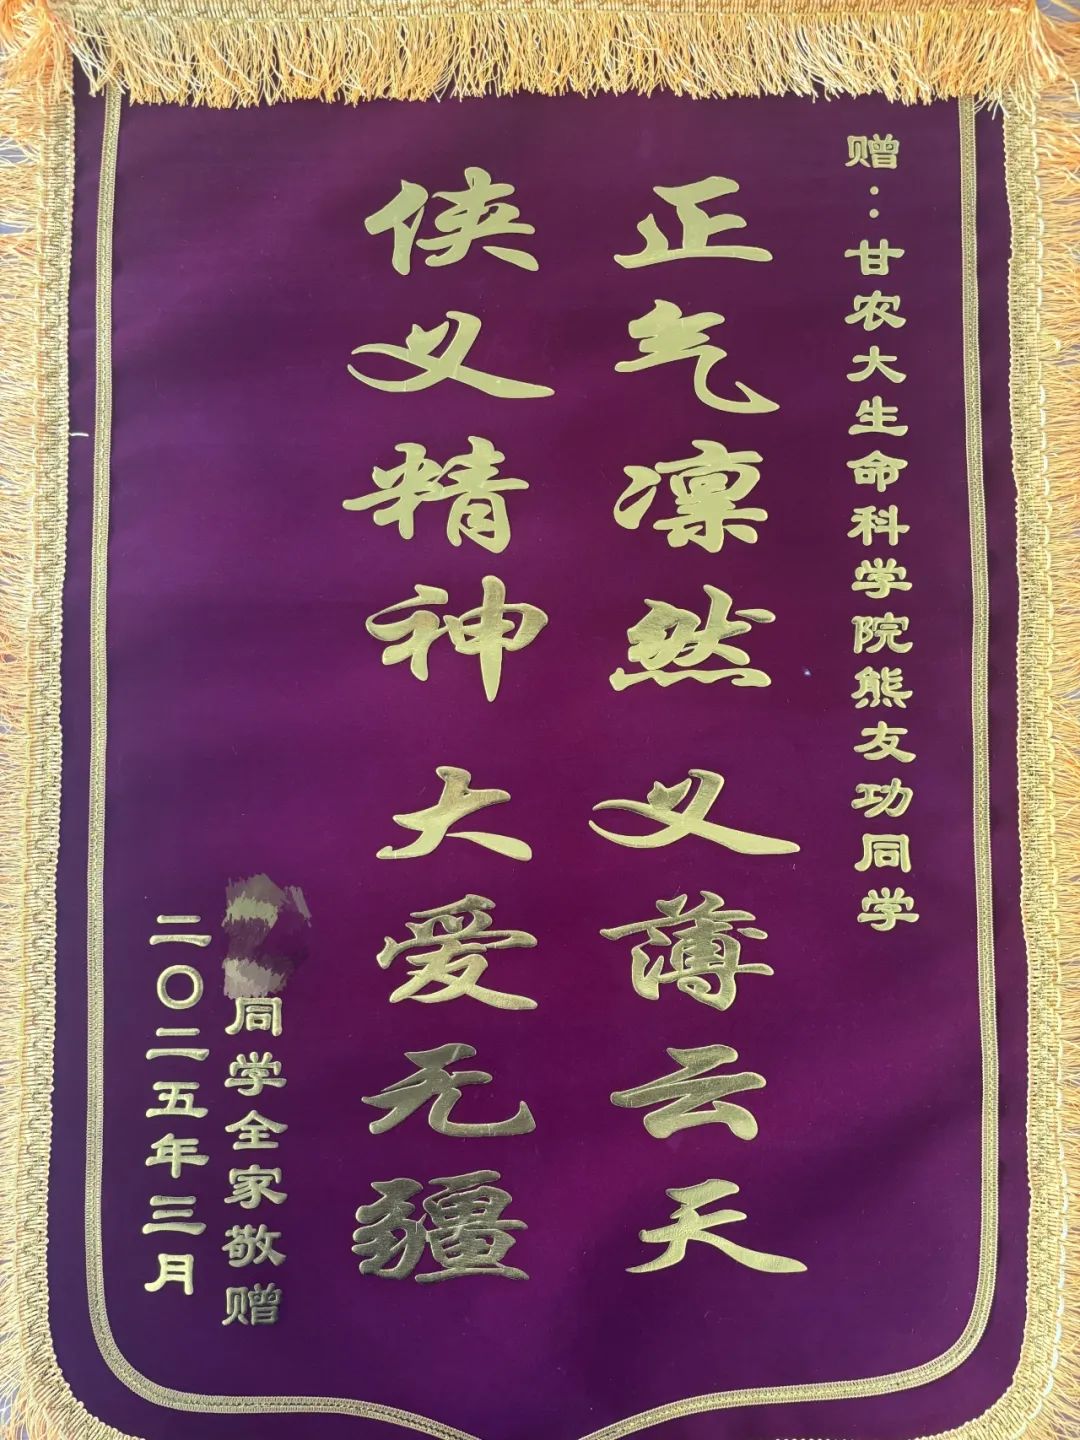 赠：甘农大生命科学院熊友功同学
正气凛然 义薄云天
侠义精神 大爱无疆
同学全家敬赠
二〇二五年三月